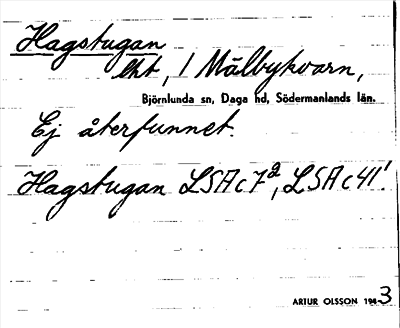 Hagstugan
lht, / Målbykvarn,
Björnlunda sn, Daga hd, Södermanlands län.
Ej återfunnet.
Hagstugan LSA c 7², LSA c 41¹.
ARTUR OLSSON 1943